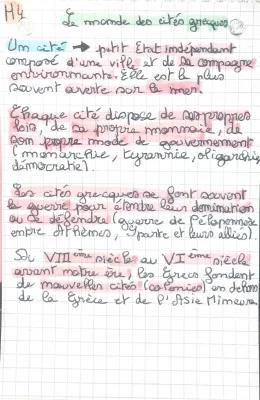 H4
Le monde des cités grecques
Un cité → petit Etat indépendant
composé d'une ville et de sa campagne
environnante. Elle est le plus
souvent ouverte sur la mer.
Chaque cité dispose de ses propres
lois, de sa propre monnaie, de
son propre mode de gouvernement
(monarchie, tyrannie, oligarchie,
démocratie).
Les cités grecques se font souvent
la guerre pour étendre leur domination
ou se défendre (guerre de Péloponnèse
entre Athènes, Sparte et leurs alliés).
Du VIIIème siècle au VIème siècle
avant notre ère, les Grecs fondent
de nouvelles cités (colonies) en dehors
de la Grèce et de l'Asie Mineure.